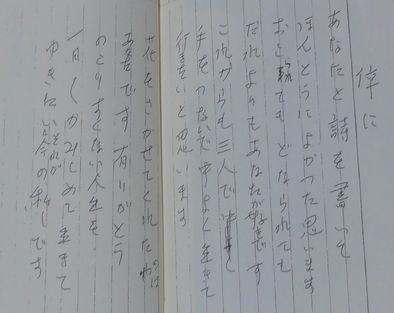 倖に
あなたと詩を書いて
ほんとうによかった思います
おこられても どなられても
だれよりもあなたが好きです
これからも三人で
手をつないで 中よく生きて
行きたいと思います
花をさかせてくれたのは
妻です 有りがとう
のこりすくない人生を
一日一日かみしめて生きて
ゆきたいそれが
今の私です